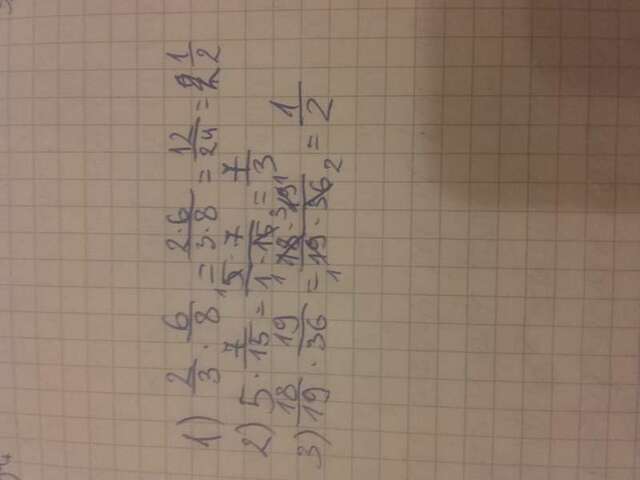 1) 2/3 · 6/8 = 2·6/3·8 = 12/24 = 1/2
2) 5 · 7/15 = 5·7/1·15 = 7/3
3) 18/19 · 19/36 = 18·19/19·36 = 1/2